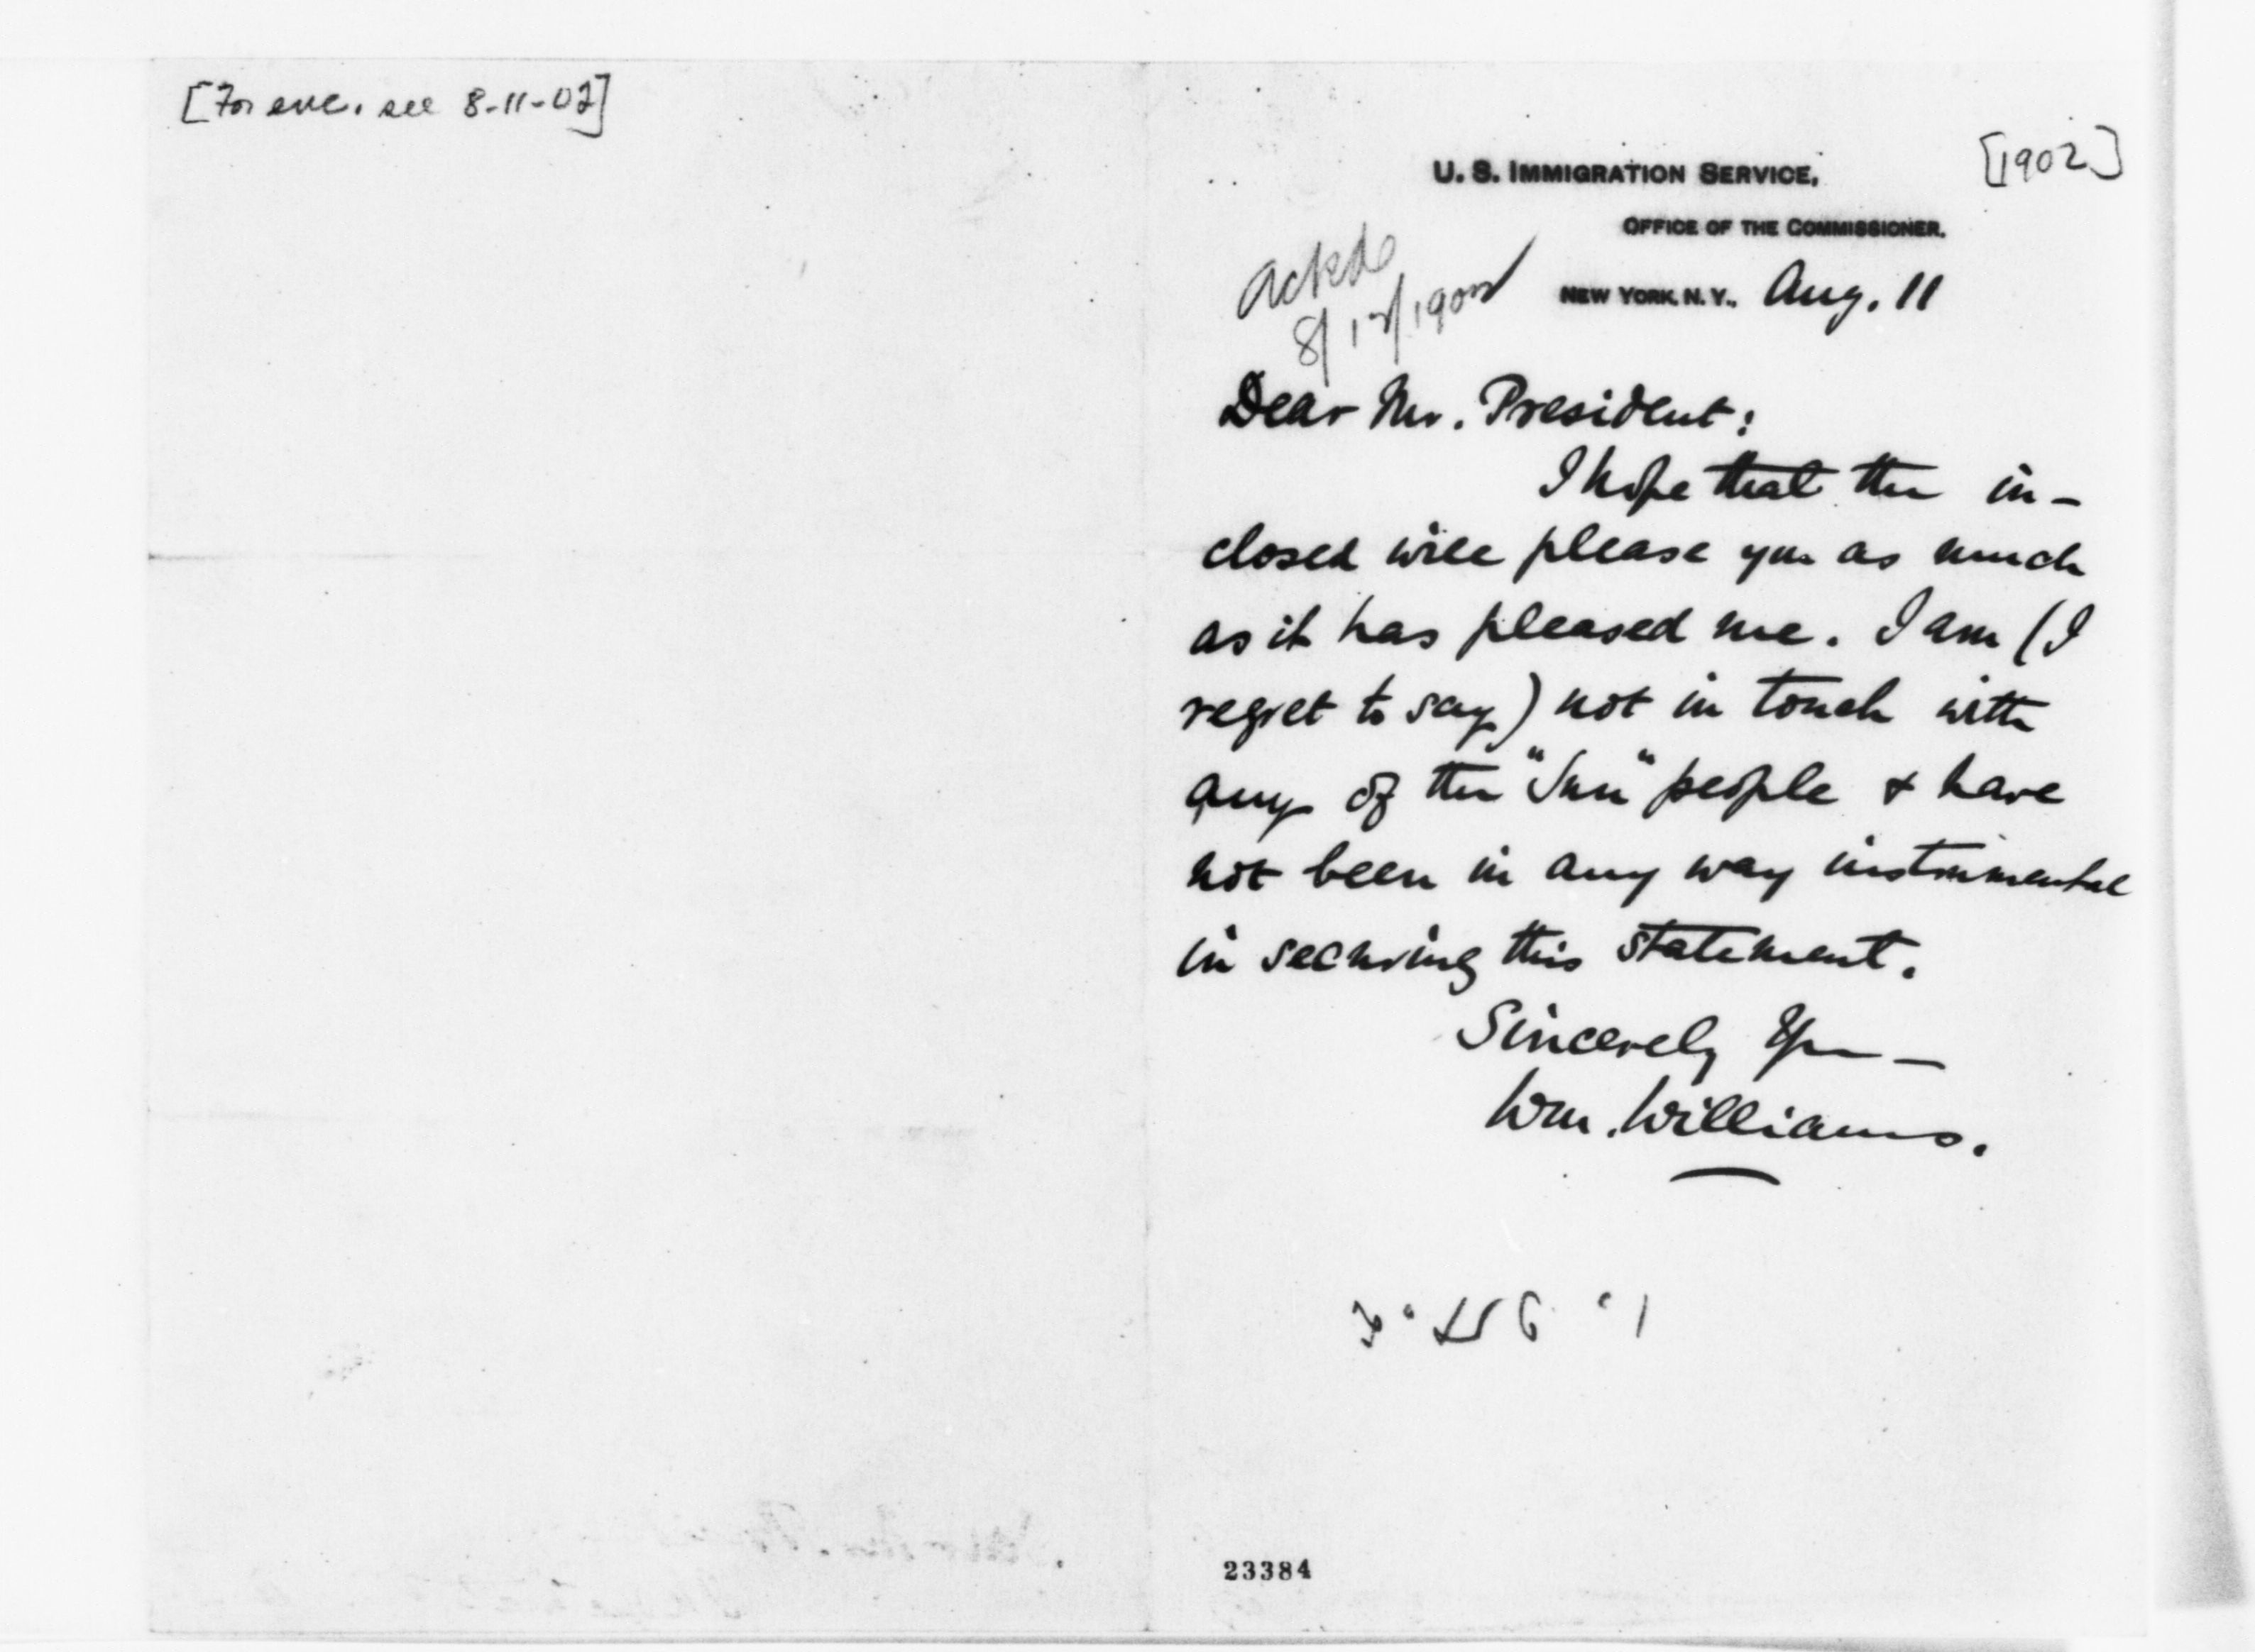 [For enc. see 8-11-02]
[1902]
U. S. IMMIGRATION SERVICE,
OFFICE OF THE COMMISSIONER.
NEW YORK, N. Y., Aug. 11
Ackd
8/12/1902
Dear Mr. President:
I hope that the in-
closed will please you as much
as it has pleased me. I am (I
regret to say) not in touch with
any of the "Sun" people & have
not been in any way instrumental
in securing this statement.
Sincerely Yrs—
Wm. Williams.
23384